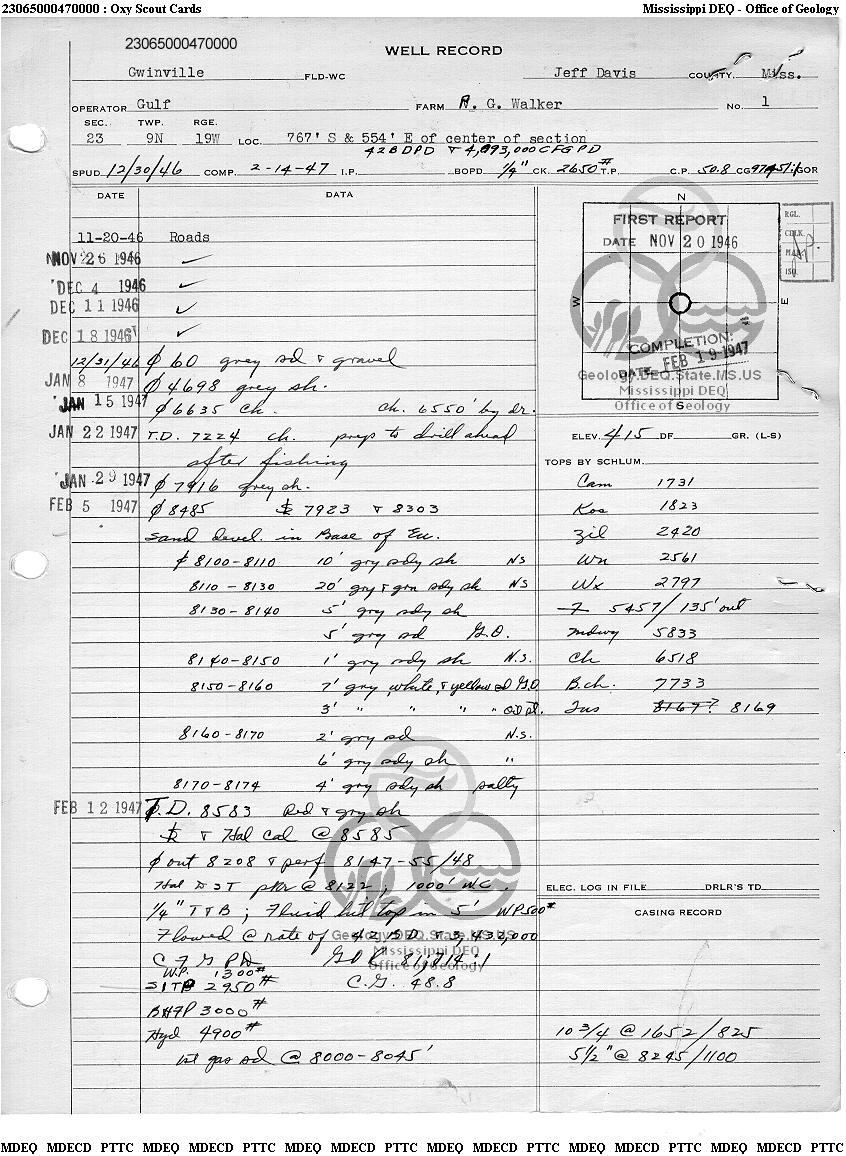 23065000470000 : Oxy Scout Cards Mississippi DEQ - Office of Geology
23065000470000
WELL RECORD
Gwinville FLD-WC Jeff Davis COUNTY, Miss.
OPERATOR Gulf FARM R. G. Walker No. 1
SEC. TWP. RGE.
23 9N 19W LOC. 767' S & 554' E of center of section
42BDPD & 4,893,000 CFGPD
SPUD 12/30/46 COMP. 2-14-47 I.P. BOPD 1/4" CK. 2650# T.P. C.P. 50.8 CG GOR
DATE DATA
N
FIRST REPORT
DATE NOV 20 1946
RGL.
W E
COMPLETION:
DATE FEB 19 1947
Geology.DEQ.State.MS.US
Mississippi DEQ
Office of Geology
S
11-20-46 Roads
NOV 26 1946 ✓
DEC 4 1946 ✓
DEC 11 1946 ✓
DEC 18 1946 ✓
12/31/46 ₵ 60 grey sd & gravel
JAN 8 1947 ₵ 4698 grey sh.
JAN 15 1947 ₵ 6635 ch. ch. 6550' by dr.
JAN 22 1947 T.D. 7224 ch. preps to drill ahead
after fishing
JAN 29 1947 ₵ 7916 grey sh.
FEB 5 1947 ₵ 8485 7923 & 8303
Sand devel. in Base of Eu.
₵ 8100-8110 10' gry sdy sh NS
8110-8130 20' gry & grn sdy sh NS
8130-8140 5' gry sdy sh
5' gry sd G.O.
8140-8150 1' gry sdy sh N.S.
8150-8160 7' gry, white, & yellow sd G.O.
3' " " " " Od st.
8160-8170 2' gry sd N.S.
6' gry sdy sh "
8170-8174 4' gry sdy sh salty
FEB 12 1947 T.D. 8583 Red & gry sh
& Hal Cal @ 8585
₵ out 8208 & perf 8147-55/48
Hal DST pkr @ 8122; 1000' WC.
1/4" T & B; Fluid hit top in 5' WP 500#
Flowed @ rate of 42 BD & 3,430,000
CFGPD GOR 81,714:1
W.P. 1300#
SITP 2950# C.G. 48.8
BHFP 3000#
Hyd 4900#
1st gas sd @ 8000-8045'
Geology.DEQ.State.MS.US
Mississippi DEQ
Office of Geology
ELEV. 415 DF GR. (L-S)
TOPS BY SCHLUM.
Cam 1731
Kos 1823
Zil 2420
Wn 2561
Wx 2797
F 5457/135' out
Mdwy 5833
Ch 6518
B.ch. 7733
Tus 8167? 8169
ELEC. LOG IN FILE DRLR'S TD
CASING RECORD
10 3/4 @ 1652/825
5 1/2" @ 8245/1100
MDEQ MDECD PTTC MDEQ MDECD PTTC MDEQ MDECD PTTC MDEQ MDECD PTTC MDEQ MDECD PTTC MDEQ MDECD PTTC